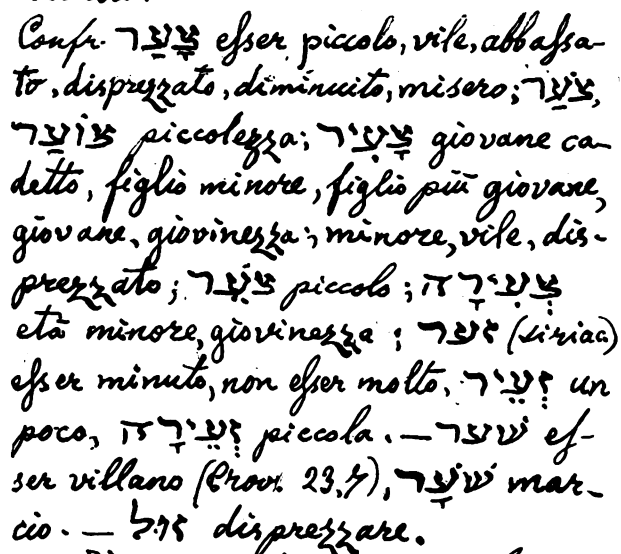 Confr. צָעַר esser piccolo, vile, abbassa-
to, disprezzato, diminuito, misero; צֹעַר,
צוֹעַר piccolezza; צָעִיר giovane ca-
detto, figlio minore, figlio più giovane,
giovane, giovinezza; minore, vile, dis-
prezzato; צֹעֵר piccolo; צְעִירָה
età minore, giovinezza; זער (siriac)
esser minuto, non esser molto, זְעֵיר un
poco, זְעֵירָה piccola. — שׁער es-
ser villano (Prov. 23,7), שֹׁעָר mar-
cio. — זלל disprezzare.